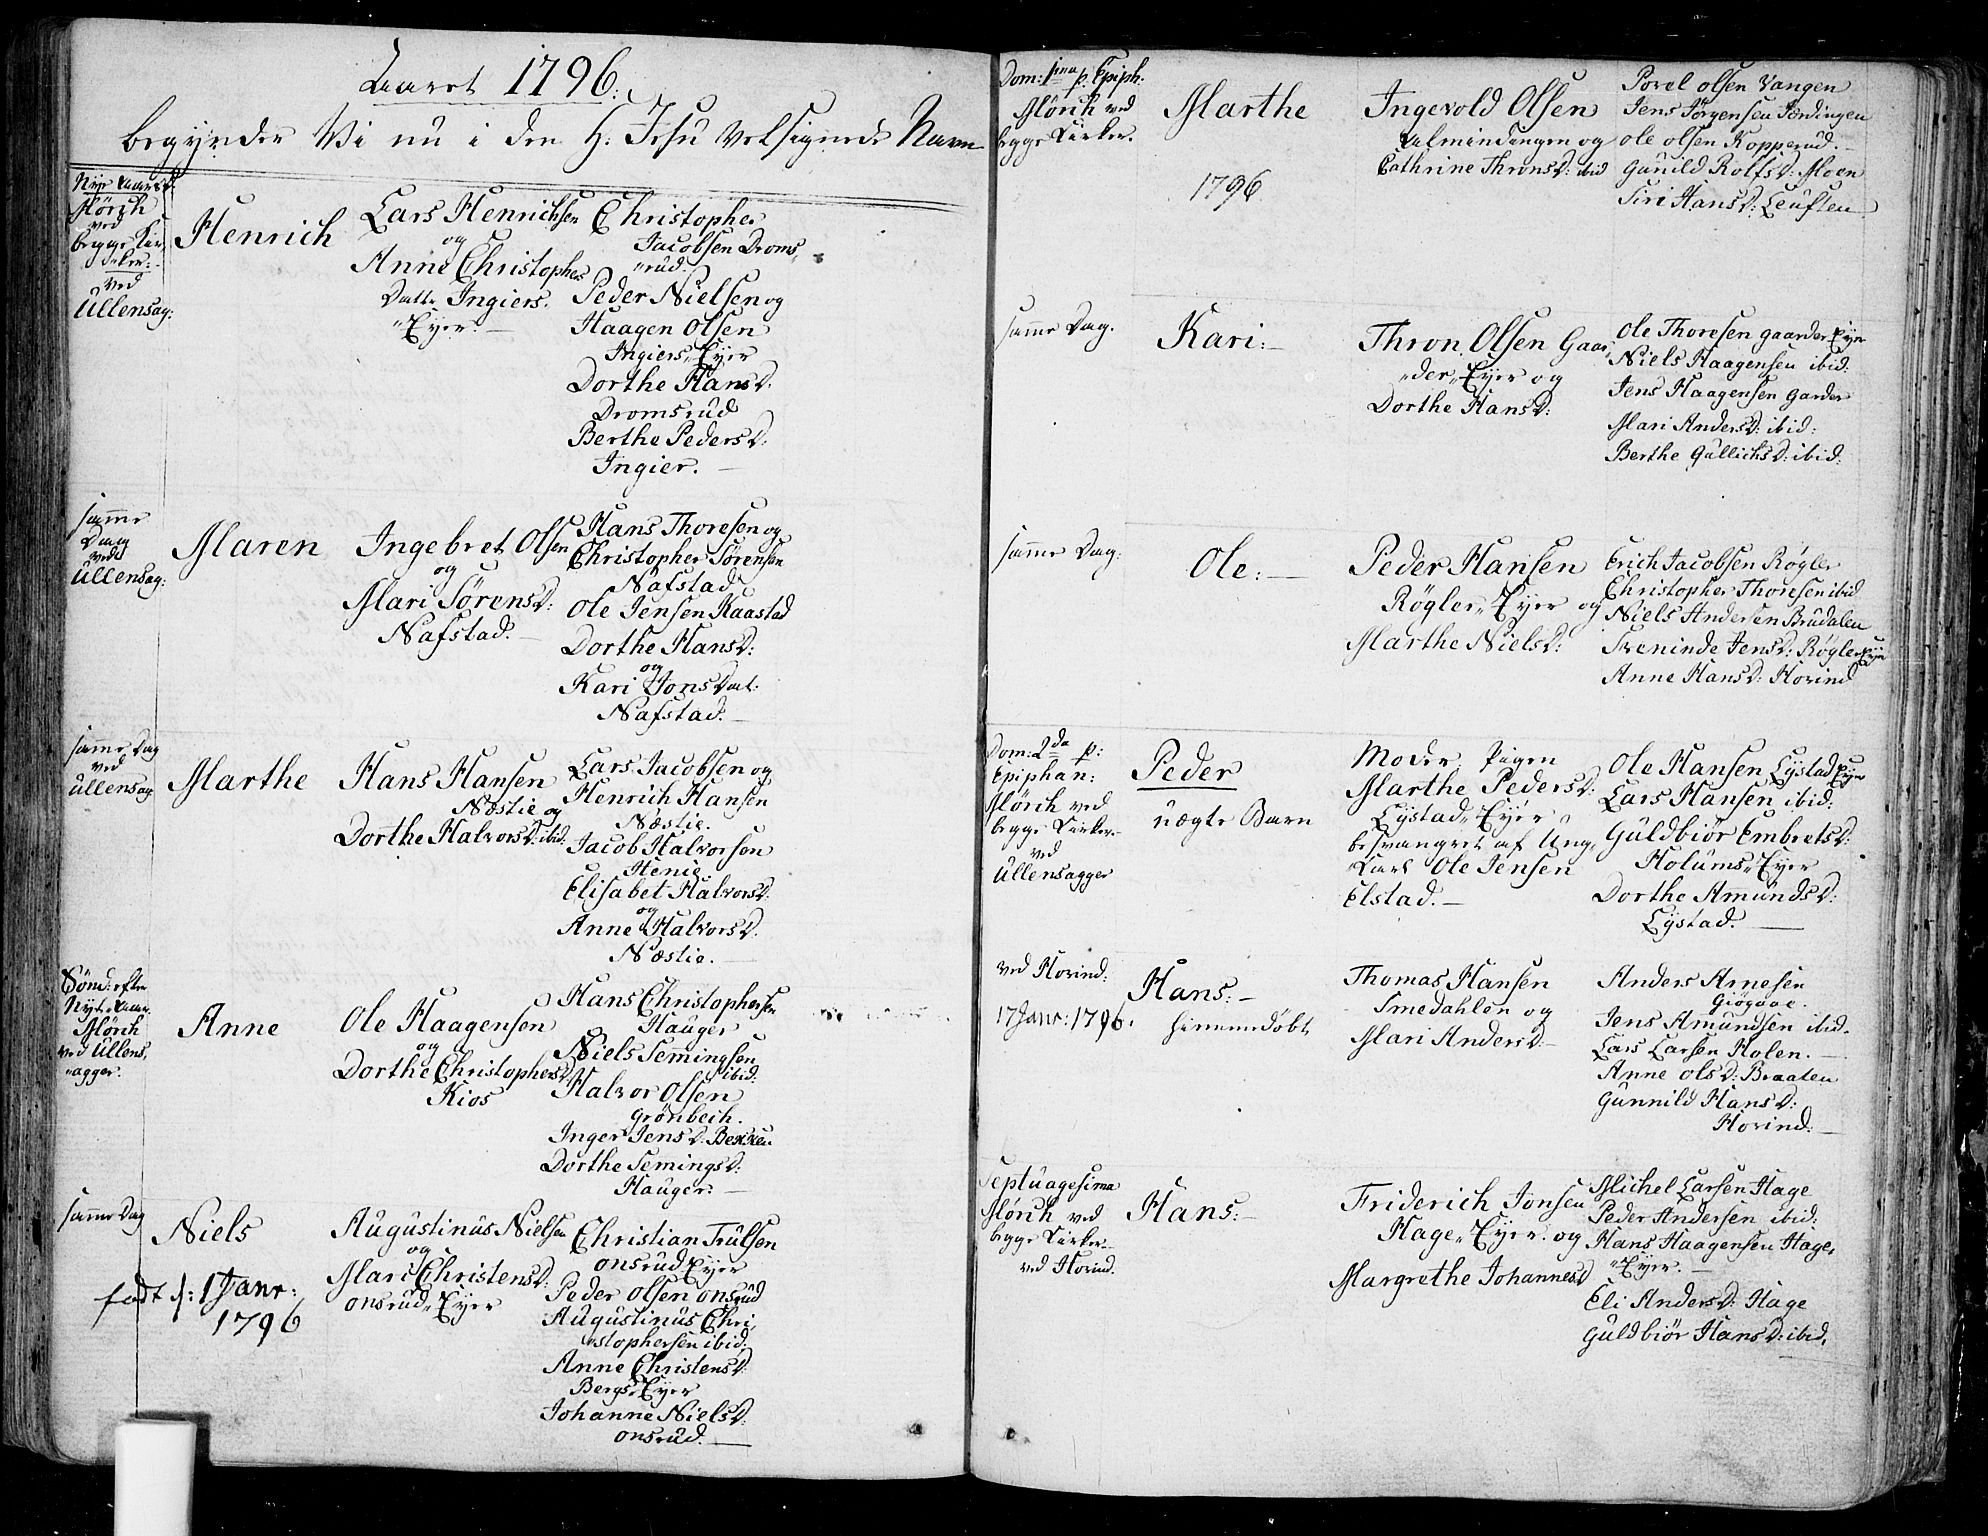 Aaret 1796.
begynder Vi nu i den H: Jesu velsignede Navn
Nyt Aarsd.
Mörch
ved
begge Kir,
„ker:
ved
Ullensag:
Henrich
Lars Henrichsen
og
Anne Christophers
Datt. Ingiers,
„Eyer.
Christopher
Jacobsen Droms,
„rud.
Peder Nielsen og
Haagen Olsen
Ingiers„Eyer
Dorthe Hansd.
Dromsrud
Berthe Pedersd:
Ingier.
samme
Dag
ved
Ullensag:
Maren
Ingebret Olsen
og
Mari Sörensd:
Nafstad.
Hans Thoresen og
Christopher Sörensen
Nafstad
Ole Jensen Kaastad
Dorthe Hansd:
og
Kari Jonsdat:
Nafstad.
samme Dag
ved
Ullensag
Marthe
Hans Hansen
Næstie og
Dorthe Halvorsd: ibid:
Lars Jacobsen og
Henrich Hansen
Næstie.
Jacob Halvorsen
Henie.
Elisabet Halvorsd:
og
Anne Halvorsd.
Næstie.
Sönd: efter
Nyt„Aar
Mörch
ved Ullens,
„agger.
Anne
Ole Haagensen
og
Dorthe Christophersd:
Kios
Hans Christophersen
Hauger
Niels Semingsen
ibid:
Halvor Olsen
Grönbech.
Inger Jensd: Bekken
Dorthe Semingsd:
Hauger:
samme Dag
Niels
födt d: 1 Janr:
1796
Augustinus Nielsen
og
Mari Christensd:
Onsrud„Eyer
Christian Trulsen
Onsrud Eyer
Peder Olsen Onsrud
Augustinus Chri,
„stophersen ibid,
Anne Christensd:
Bergs„Eyer
Johanne Nielsd:
Onsrud.
Dom: 1ma p. Epiph.
Mörch ved
begge Kirker.
Marthe
1796
Ingevold Olsen
Almindingen og
Cathrine Thronsd: ibid
Povel Olsen Vangen
Jens Jörgensen
Ole Olsen Kopperud.
Gunild Rolfsd: Moen
Siri Hansd: Leuften
samme Dag.
Kari:
Thron Olsen Gaar,
„der„Eyer og
Dorthe Hansd:
Ole Thoresen Gaarder Eyer
Niels Haagensen ibid:
Jens Haagensen Garder
Mari Andersd: ibid:
Berthe Gullichsd: ibid:
samme Dag.
Ole:
Peder Hansen
Røgler„Eyer og
Marthe Nielsd:
Erich Jacobsen Røgler
Christopher Thoresen ibid
Niels Andersen Brudalen
Jensd: Røgler Eyer
Anne Hansd: Hovind
Dom: 2da p:
Epiphan:
Mörch ved
begge Kirker.
ved
Ullensagger
Peder
uægte Barn
Moder, Pigen
Marthe Pedersd:
Lystad„Eyer
besvangret af Ung,
Karl Ole Jensen
Elstad.
Ole Hansen Lystad Eyer
Lars Hansen ibid:
Guldbiör Embretsd:
Holums„Eyer
Dorthe Amundsd:
Lystad.
ved Hovind:
17 Janr: 1796.
Hans:
hiemmedöbt
Thomas Hansen
Smedahlen og
Mari Andersd:
Anders Arnesen
Jens Amundsen ibid.
Lars Larsen Holen.
Anne Olsd: Braaten
Gunnild Hansd:
Hovind:
Septuagesima
Mörch ved
begge Kirker
ved Hovind.
Hans:
Friderich Jonsen
Hage„Eyer og
Margrethe Johannesd
Michel Larsen Hage
Peder Andersen ibid:
Hans Haagensen Hage,
„Eyer.
Eli Andersd: Hage
Guldbiör Hansd: ibid,